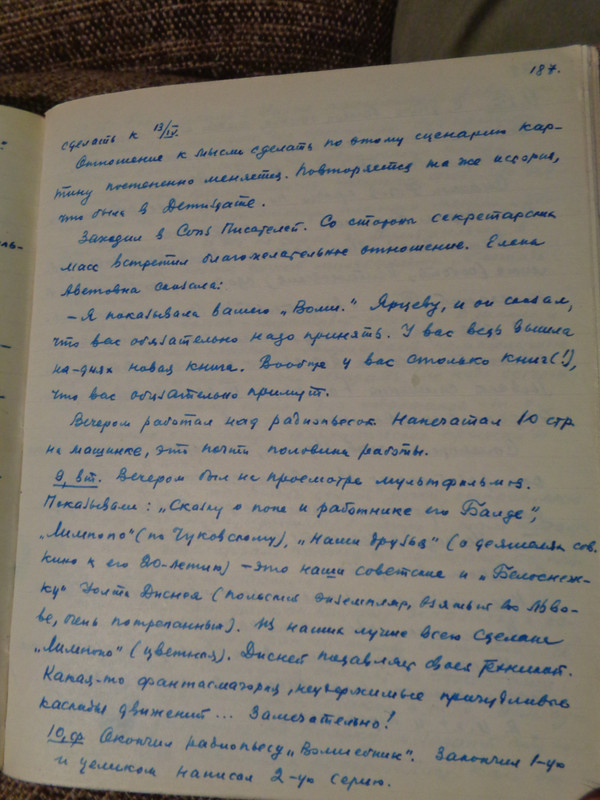 187.
сделать к 13/IV.
Отношение к мысли сделать по этому сценарию кар-
тину постепенно меняется. Повторяется та же история,
что была в Детиздате.
Заходил в Союз Писателей. Со стороны секретарши
Масс встретил благожелательное отношение. Елена
Аветовна сказала:
– Я показывала вашего „Волш." Ярцеву, и он сказал,
что вас обязательно надо принять. У вас ведь вышла
на-днях новая книга. Вообще у вас столько книг(!),
что вас обязательно примут.
Вечером работал над радиопьесой. Напечатал 10 стр
на машинке, это почти половина работы.
9, вт. Вечером был на просмотре мультфильмов.
Показывали: „Сказку о попе и работнике его Балде",
„Лимпопо" (по Чуковскому), „Наши друзья" (о деятелях сов.
кино к его 20-летию) – это наши советские и „Белоснеж-
ку" Уолта Диснея (польский экземпляр, взятый во Льво-
ве, очень потрепанный). Из наших лучше всего сделана
„Лимпопо" (цветная). Дисней подавляет своей техникой.
Какая-то фантасмагория, неудержимые причудливые
каскады движений... Замечательно!
10, ср Окончил радиопьесу „Волшебник". Закончил 1-ую
и целиком написал 2-ую серию.